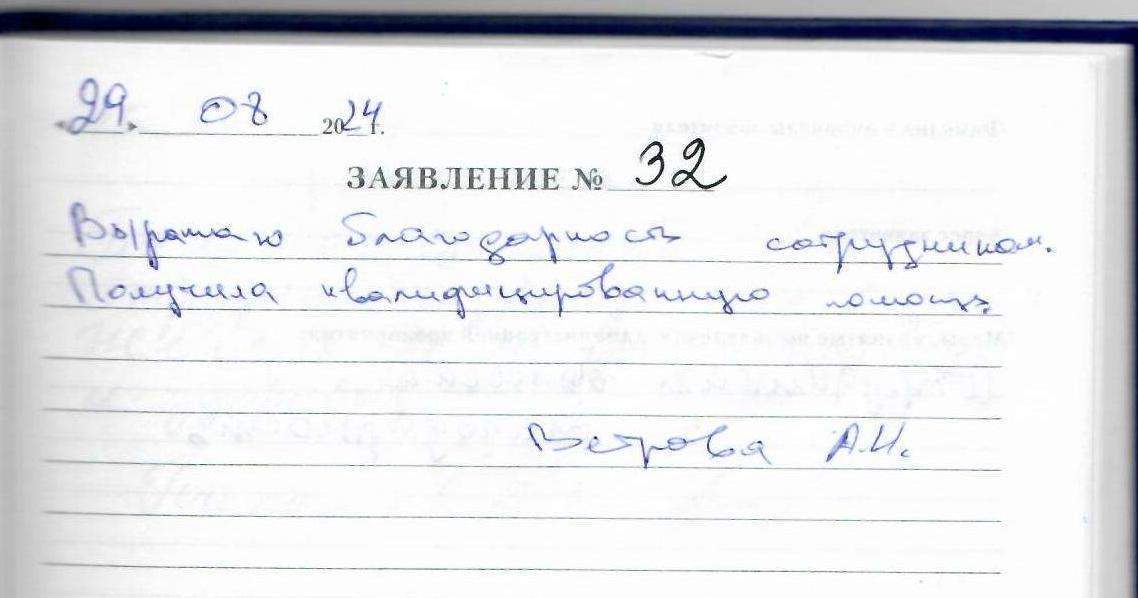 «29» 08 2024 г.
ЗАЯВЛЕНИЕ № 32
Выражаю благодарность сотрудникам.
Получила квалифицированную помощь
Ветрова А.И.